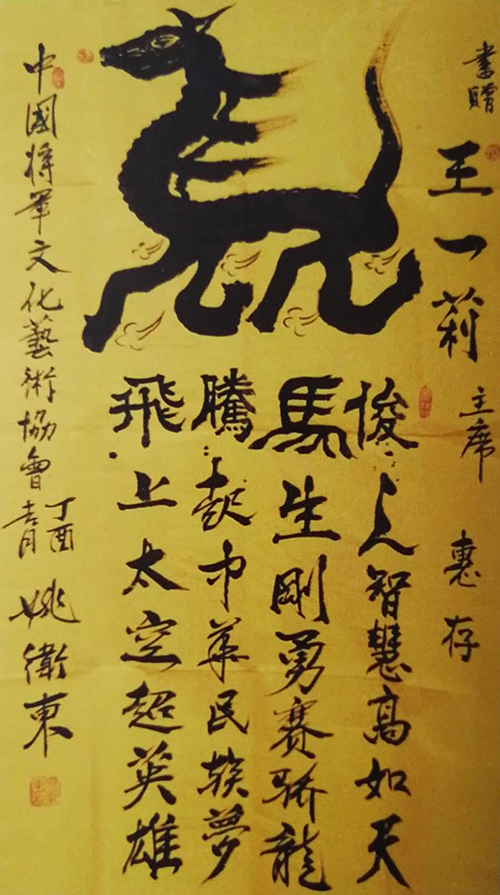 書贈
王一莉主席惠存
俊人智慧高如天
馬生剛勇賽驕龍
騰起中華民族夢
飛上太空超英雄
中國將軍文化藝術協會
丁酉
姚衛東